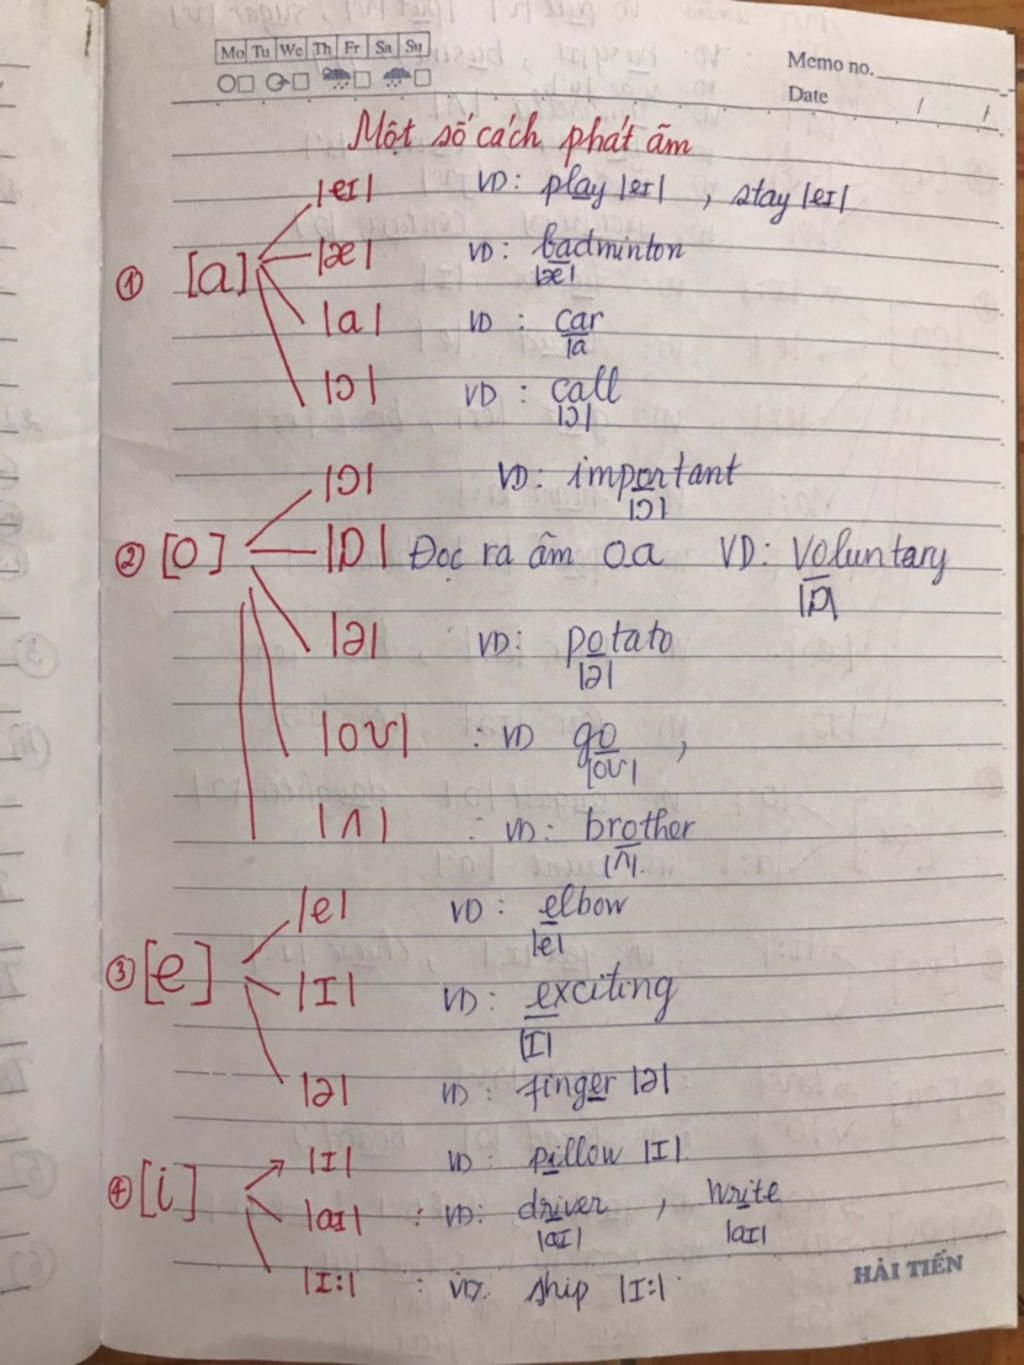 Mo Tu We Th Fr Sa Su
Memo no.
Date / /
Một số cách phát âm
|eɪ| VD: play |eɪ| , stay |eɪ|
① [a] |æ| VD: badminton
|æ|
|a| VD : car
|a
|ɔ| VD : call
|ɔ|
|ɔ| VD: important
|ɔ|
② [o] |ɒ| Đọc ra âm oa VD: voluntary
|ɒ|
|ə| VD: potato
|ə|
|oʊ| : VD go ,
|oʊ|
|ʌ| : VD: brother
|ʌ|
|e| VD : elbow
|e|
③ [e] |ɪ| VD : exciting
|ɪ|
|ə| VD : finger |ə|
|ɪ| VD : pillow |ɪ|
④ [i] |aɪ| : VD: driver , write
|aɪ| |aɪ|
|ɪ:| : VD: ship |ɪ:|
HẢI TIẾN